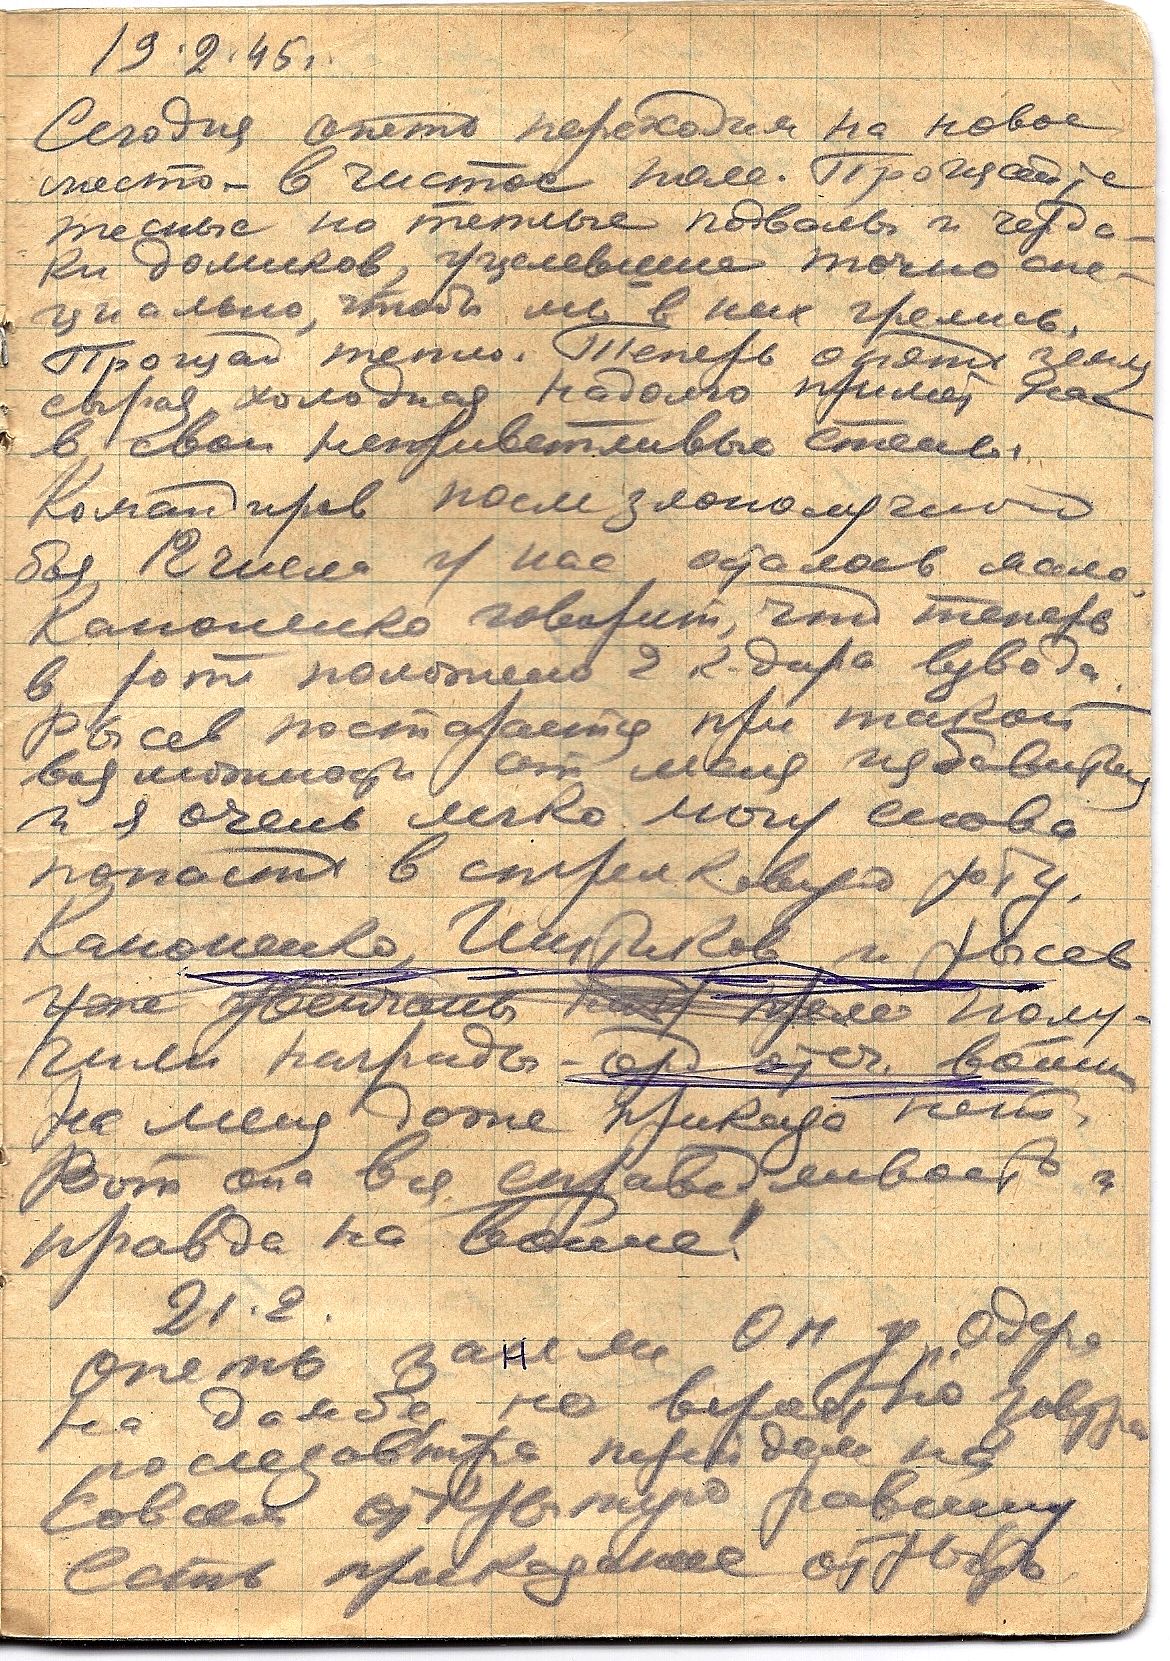 19.2.45г.
Сегодня опять переходим на новое
место – в чистое поле. Прощайте
тесные но теплые подвалы и черда-
ки домиков, уцелевшие точно спе-
циально, чтобы мы в них грелись.
Прощай тепло. Теперь опять земля
сырая, холодная надолго примет нас
в свои неприветливые стены.
Командиров после злополучного
боя 12 числа у нас осталось мало.
Каноненко говорит, что теперь
в роте положено 2 к-дира взвода.
Рысев постарается при такой
возможности от меня избавиться
и я очень легко могу снова
попасть в стрелковую роту.
Каноненко, Шириков и Рысев
уже получили
награды – орд отеч. войны
На меня даже приказа нет.
Вот она вся справедливость и
правда на войне!
21.2.
опять заняли ОП у Одера
на дамбе, но вероятно завтра
послезавтра перейдем на
совсем открытую равнину
Есть приказание открыть